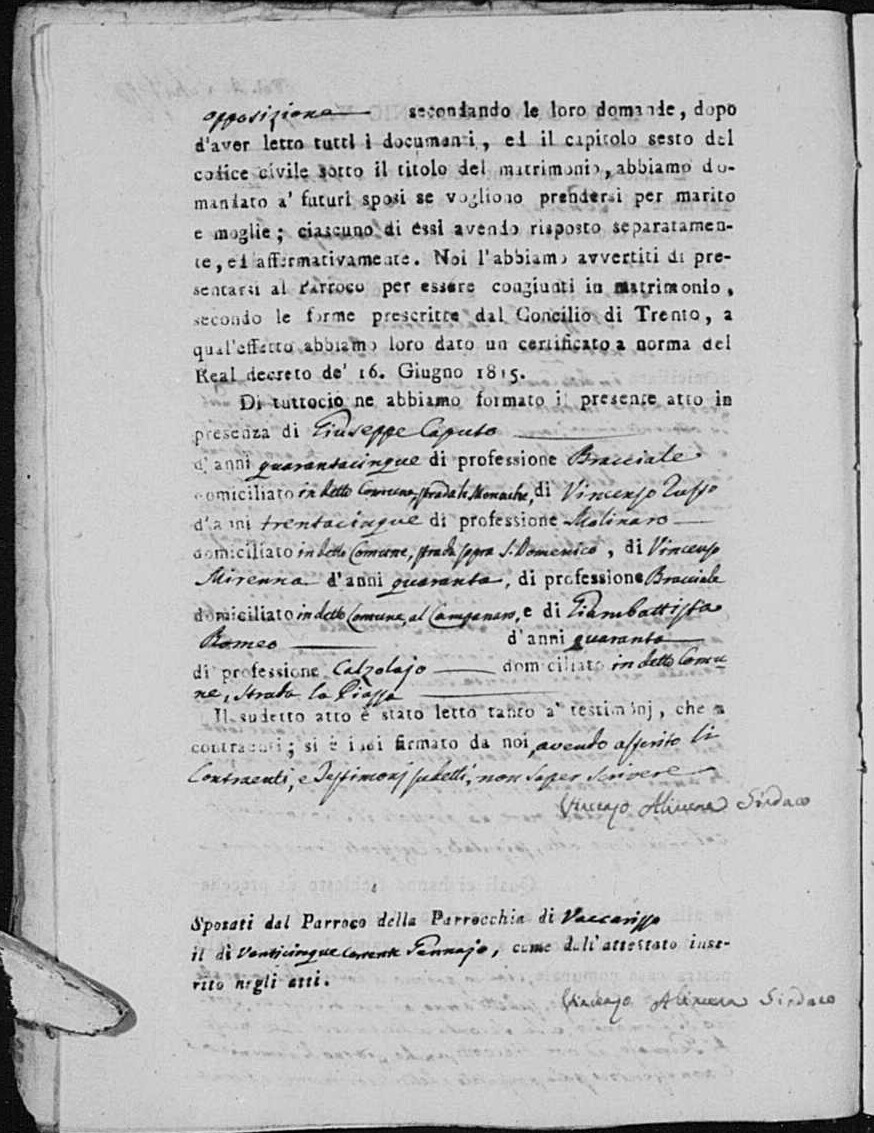 opposizione secondando le loro domande, dopo
d'aver letto tutti i documenti, ed il capitolo sesto del
codice civile sotto il titolo del matrimonio, abbiamo do-
mandato a' futuri sposi se vogliono prendersi per marito
e moglie; ciascuno di essi avendo risposto separatamen-
te, ed affermativamente. Noi l'abbiamo avvertiti di pre-
sentarsi al Parroco per essere congiunti in matrimonio,
secondo le forme prescritte dal Concilio di Trento, a
qual'effetto abbiamo loro dato un certificato a norma del
Real decreto de' 16. Giugno 1815.
Di tuttociò ne abbiamo formato il presente atto in
presenza di Giuseppe Caputo
d'anni quarantacinque di professione Bracciale
domiciliato in detto Comune, strada le Monache, di Vincenzo Tusso
d'anni trentacinque di professione Molinaro
domiciliato in detto Comune, strada sopra S. Domenico, di Vincenzo
Mirenna d'anni quaranta, di professione Bracciale
domiciliato in detto Comune, al Campanaro, e di Giambattista
Romeo d'anni quaranta
di professione Calzolajo domiciliato in detto Comu
ne, strada la Piazza
Il sudetto atto è stato letto tanto a' testimonj, che a
contraenti; si è indi firmato da noi, avendo asserito li
Contraenti, e Testimonj sudetti, non saper scrivere
Vincenzo Sindaco
Sposati dal Parroco della Parrocchia di Vaccarizzo
il dì Venticinque corrente Gennajo, come dall'attestato inse-
rito negli atti.
Vincenzo Sindaco